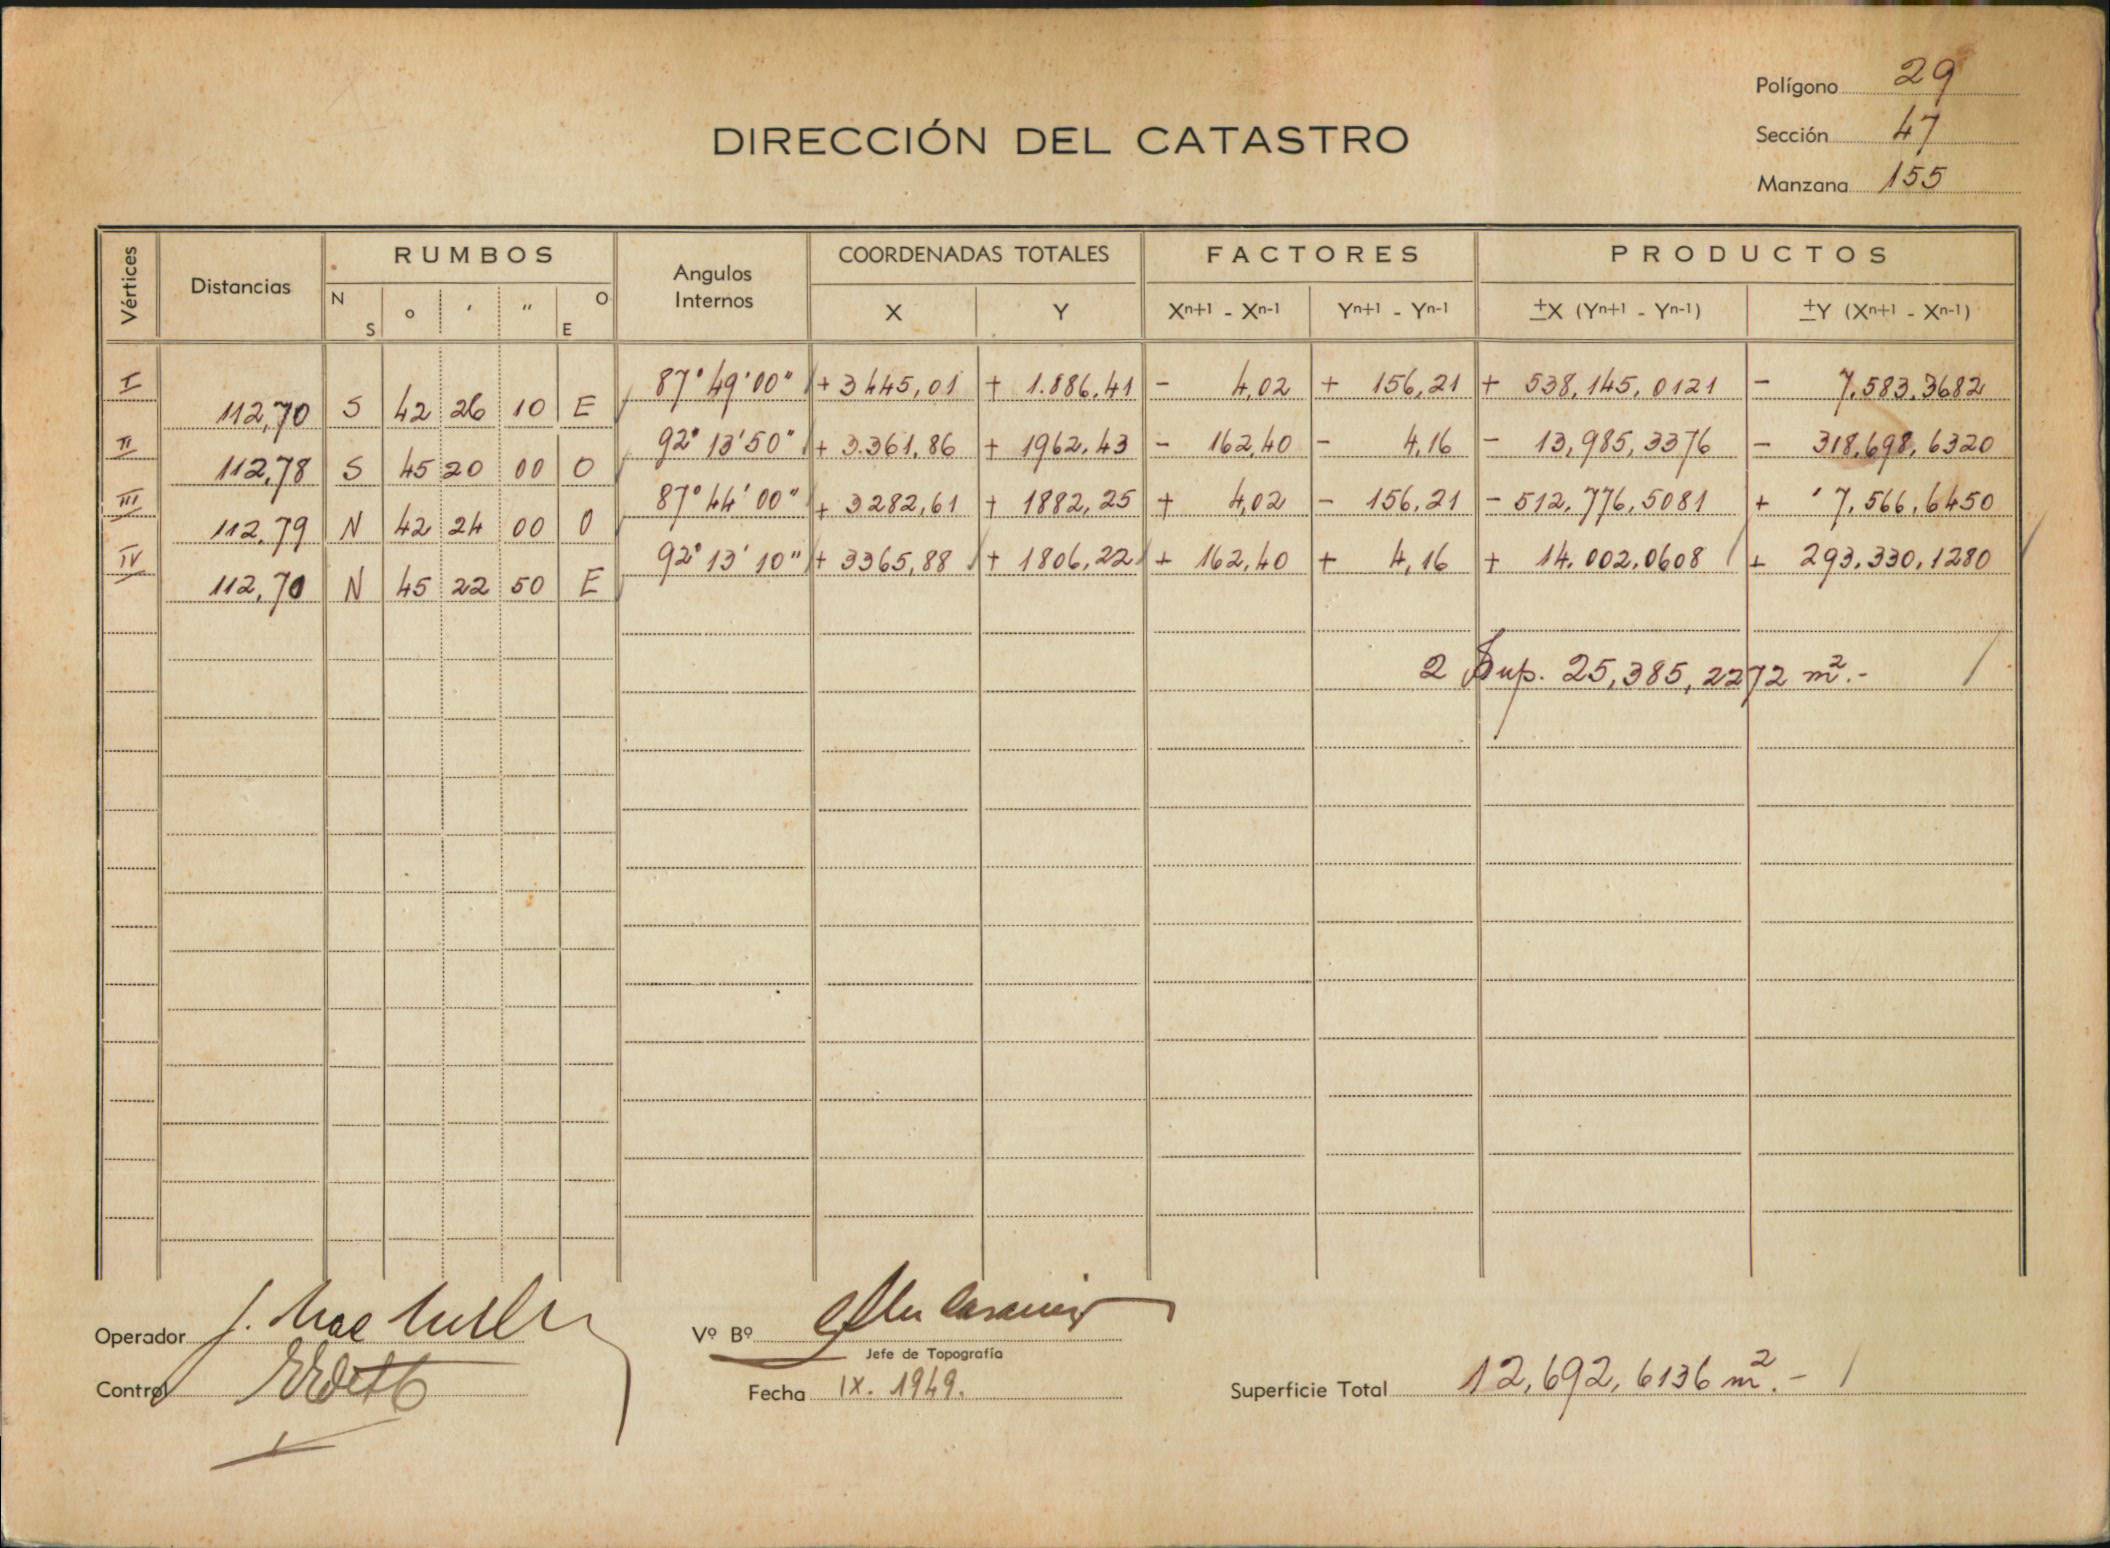 Polígono 29
DIRECCIÓN DEL CATASTRO
Sección 47
Manzana 155
Vértices Distancias RUMBOS Angulos Internos COORDENADAS TOTALES FACTORES PRODUCTOS
N S o ' " O E X Y Xn+1 - Xn-1 Yn+1 - Yn-1 ±X (Yn+1 - Yn-1) ±Y (Xn+1 - Xn-1)
I 87° 49' 00" + 3445,01 + 1.886,41 - 4,02 + 156,21 + 538,145,0121 - 7,583,3682
112,70 S 42 26 10 E
II 92° 13' 50" + 3.361,86 + 1962,43 - 162,40 - 4,16 - 13,985,3376 - 318,698,6320
112,78 S 45 20 00 O
III 87° 44' 00" + 3282,61 + 1882,25 + 4,02 - 156,21 - 512,776,5081 + 7,566,6450
112,79 N 42 24 00 O
IV 92° 13' 10" + 3365,88 + 1806,22 + 162,40 + 4,16 + 14.002,0608 + 293.330,1280
112,70 N 45 22 50 E
2 Sup. 25,385,2272 m².-
Operador
Vº Bº
Jefe de Topografía
Control
Fecha IX. 1949.
Superficie Total 12,692,6136 m².-